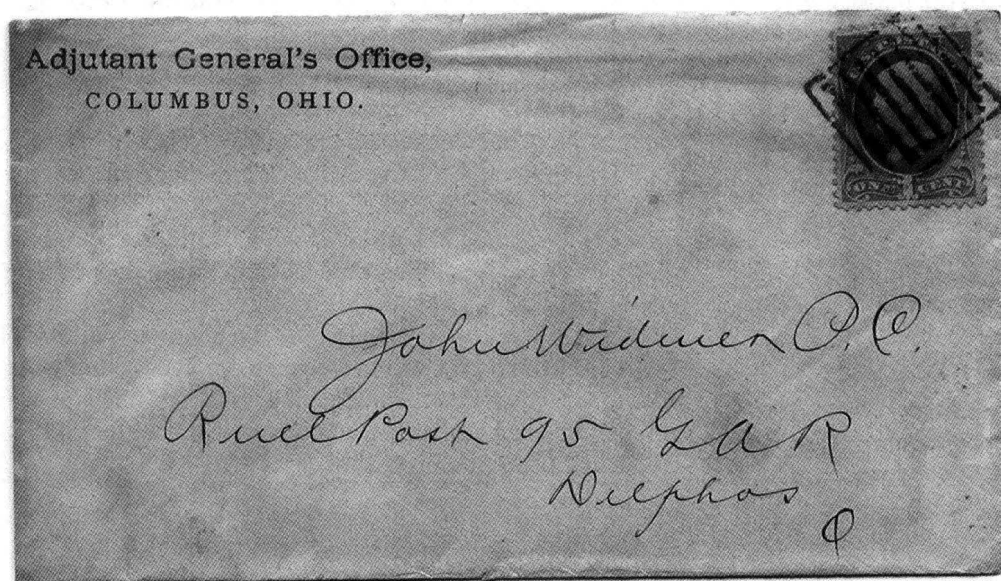 Adjutant General's Office,
COLUMBUS, OHIO.
John Widener P. C.
Ruel Post 95 G A R
Delphos
O